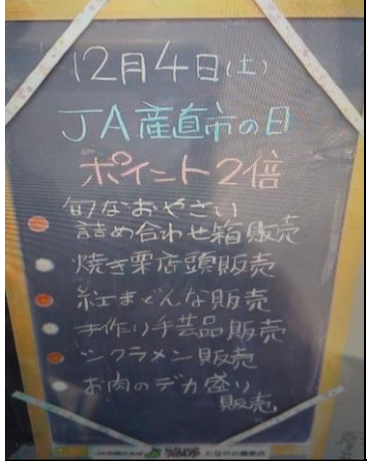 12月4日(土)
JA産直市の日
ポイント2倍
旬なおやさい
詰め合わせ箱販売
焼き栗店頭販売
紅まどんな販売
手作り手芸品販売
シクラメン販売
お肉のデカ盛り
販売